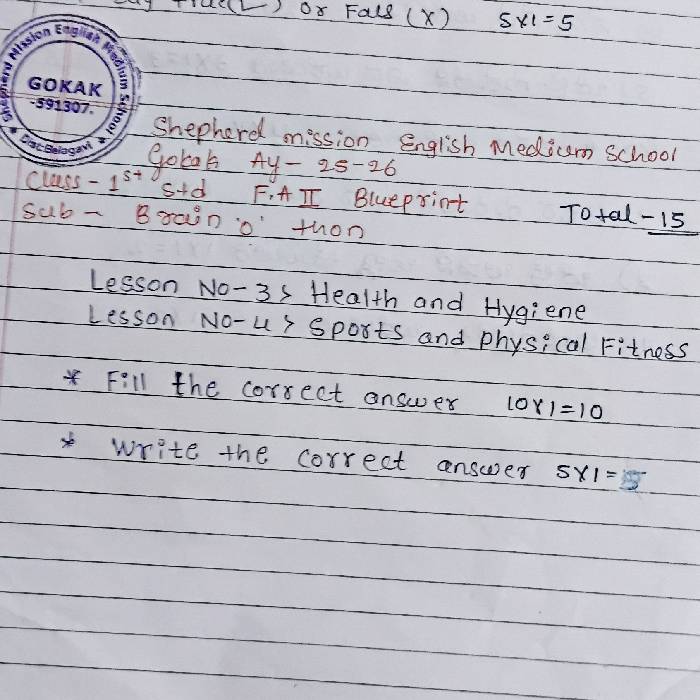 or Fals (x) 5x1=5
Shepherd Mission English Medium School
GOKAK
-591307.
Dist:Belagavi
Shepherd mission English Medium School
Gokak Ay- 25-26
Class - 1st std F.A II Blueprint
Sub - Brain 'o' thon Total - 15
Lesson No-3> Health and Hygiene
Lesson No-4> Sports and physical Fitness
* Fill the correct answer 10x1=10
* Write the correct answer 5x1=5